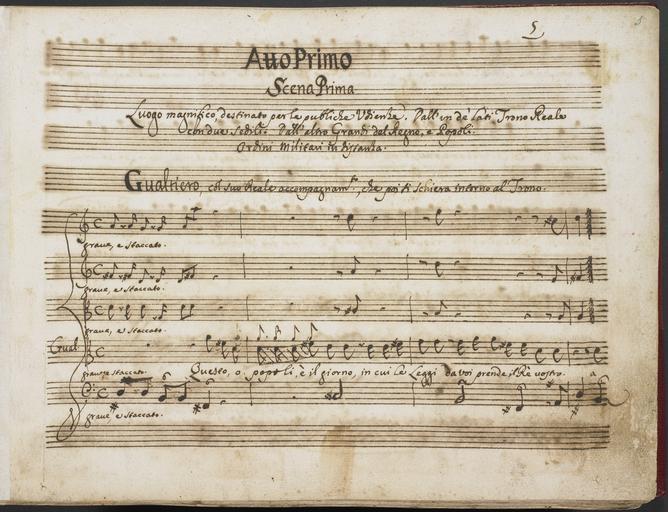 5
Atto Primo
Scena Prima
Luogo magnifico destinato per le publiche Udienze. Dall' un de' lati Trono Reale
con due Sedili. Dall' altro Grandi del Regno, e Popoli.
Ordini Militari in distanza.
Gualtiero, col suo Reale accompagnam.to, che poi si schiera intorno al Trono.
grave, e staccato.
grave, e staccato.
grave, e staccato.
Gual.
grave e staccato. Questo, o popoli, è il giorno, in cui le Leggi da voi prende il Rè vostro. a
grave e staccato.